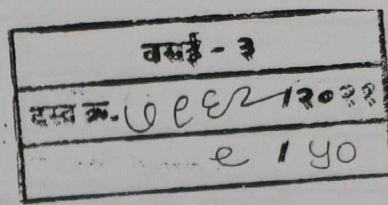 वसई - ३
दस्त क्र. ७९६२/२०२२
९ / ५०